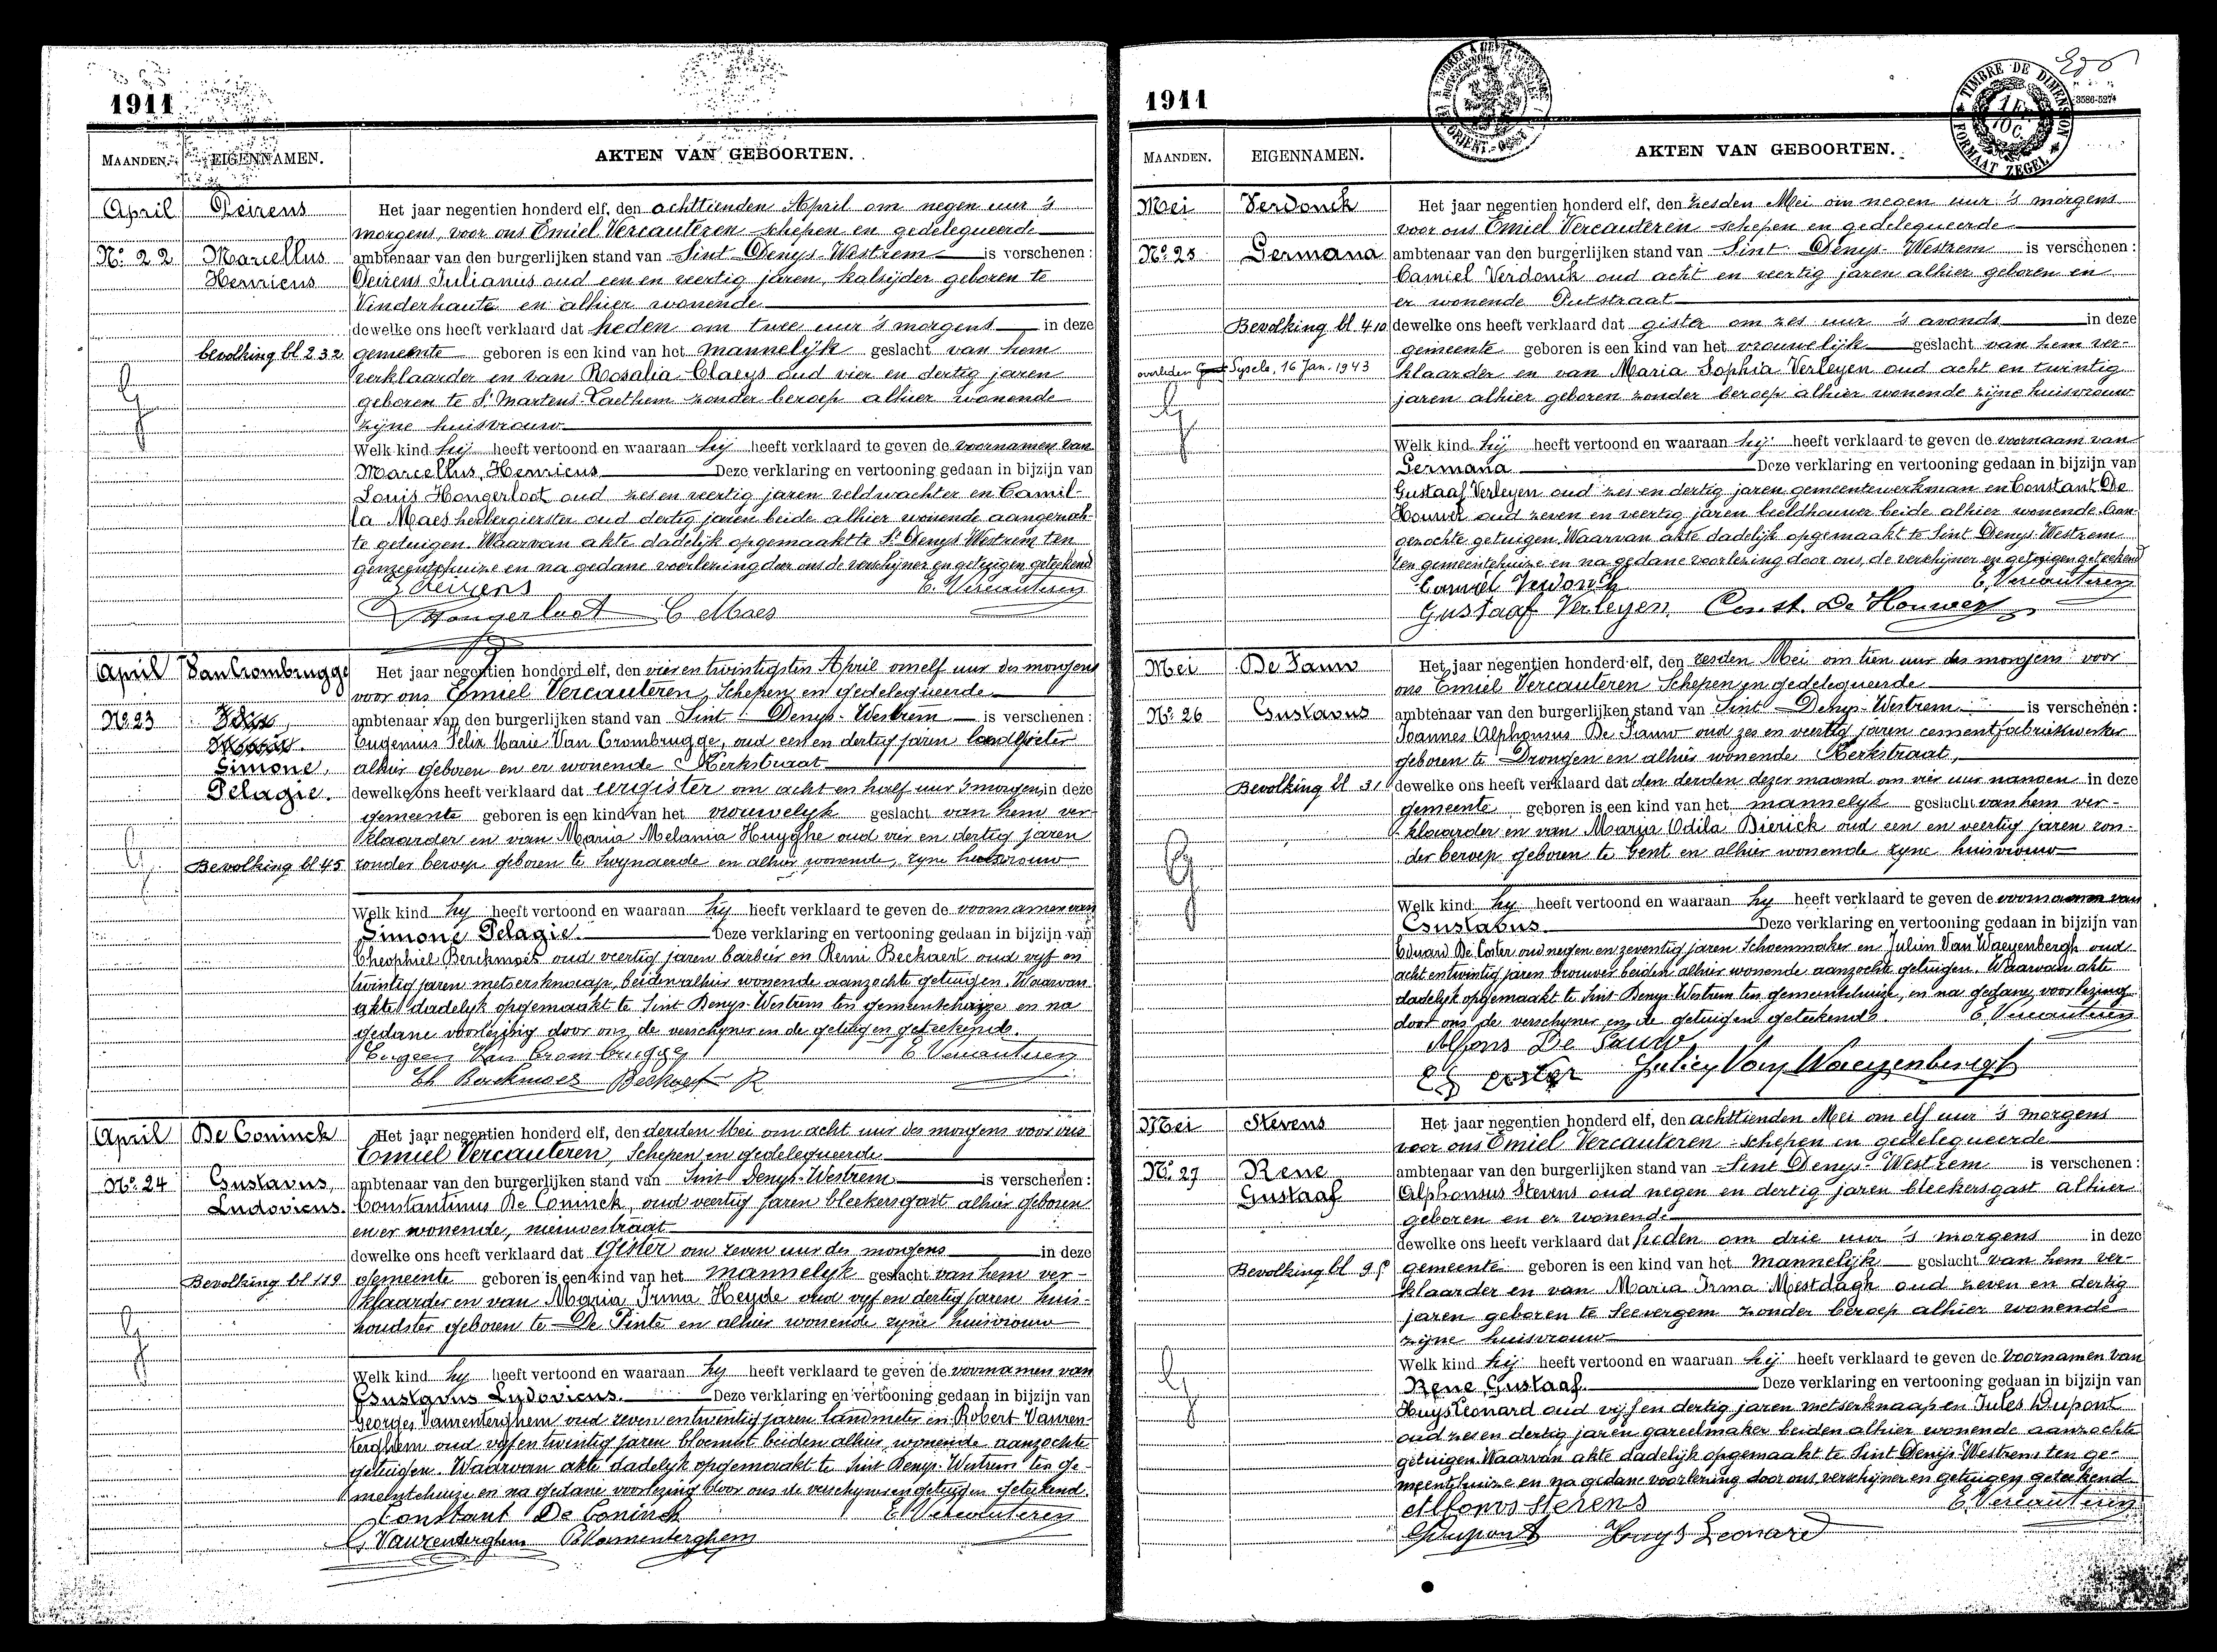 1911
MAANDEN. EIGENNAMEN. AKTEN VAN GEBOORTEN.
April Deirens
Het jaar negentien honderd elf, den achttienden April om negen uur 's
morgens, voor ons Emiel Vercauteren schepen en gedelegueerde
No. 22 Marcellus
Henricus
ambtenaar van den burgerlijken stand van Sint Denys-Westrem is verschenen:
Deirens Julianus oud een en veertig jaren, kalsijder geboren te
Vinderhaute en alhier wonende
dewelke ons heeft verklaard dat heden om twee uur 's morgens in deze
bevolking bl 232
gemeente geboren is een kind van het mannelijk geslacht van hem
verklaarder en van Rosalia Claeys oud vier en dertig jaren
geboren te St Martens-Laethem zonder beroep alhier wonende
zijne huisvrouw
Welk kind hij heeft vertoond en waaraan hij heeft verklaard te geven de voornamen van
Marcellus, Henricus Deze verklaring en vertooning gedaan in bijzijn van
Louis Hongerloot oud zes en veertig jaren veldwachter en Camil-
la Maes herbergierster oud dertig jaren beide alhier wonende aangezoch-
te getuigen. Waarvan akte dadelijk opgemaakt te St Denys Westrem ten
gemeentehuize en na gedane voorlezing door ons de verschijner en getuigen geteekend
J Deirens E. Vercauteren
L Hongerloot C Maes
April Van Crombrugge
Het jaar negentien honderd elf, den vier en twintigsten April om elf uur des morgens
voor ons Emiel Vercauteren, Schepen en gedelegueerde
No. 23
Simone,
Pelagie.
ambtenaar van den burgerlijken stand van Sint Denys-Westrem is verschenen:
Eugenius Felix Marie Van Crombrugge, oud een en dertig jaren
alhier geboren en er wonende Kerkstraat
dewelke ons heeft verklaard dat eergister om acht en half uur 's morgens in deze
gemeente geboren is een kind van het vrouwelyk geslacht van hem ver-
klaarder en van Maria Melania Huyghe oud vier en dertig jaren
Bevolking bl 45
zonder beroep geboren te Swynaerde en alhier wonende, zyne huisvrouw
Welk kind hy heeft vertoond en waaraan hy heeft verklaard te geven de voornamen van
Simone Pelagie. Deze verklaring en vertooning gedaan in bijzijn van
Theophiel Berckmoes oud veertig jaren barbier en Remi Beckaert oud vyf en
twintig jaren metsersknaap, beiden alhier wonende aanzochte getuigen. Waarvan
akte dadelyk opgemaakt te Sint Denys-Westrem ten gemeentehuize en na
gedane voorlezing door ons de verschyner en de getuigen geteekend.
Eugeen Van Crombrugge E Vercauteren
Th Berckmoes Beckaert R
April De Coninck
Het jaar negentien honderd elf, den derden Mei om acht uur des morgens voor ons
Emiel Vercauteren, Schepen en gedelegueerde
No. 24 Gustavus,
Ludovicus.
ambtenaar van den burgerlijken stand van Sint Denys-Westrem is verschenen:
Constantinus De Coninck, oud veertig jaren bleekersgast alhier geboren
en er wonende, nieuwestraat
dewelke ons heeft verklaard dat gister om zeven uur des morgens in deze
Bevolking bl 119
gemeente geboren is een kind van het mannelyk geslacht van hem ver-
klaarder en van Maria Irma Heyde oud vyf en dertig jaren huis-
houdster geboren te De Pinte en alhier wonende zyne huisvrouw
Welk kind hy heeft vertoond en waaraan hy heeft verklaard te geven de voornamen van
Gustavus Ludovicus. Deze verklaring en vertooning gedaan in bijzijn van
Georges Vanrenterghem oud zeven en twintig jaren landmeter en Robert Vanren-
terghem oud vyf en twintig jaren bloemist beiden alhier wonende aanzochte
getuigen. Waarvan akte dadelyk opgemaakt te Sint Denys-Westrem ten ge-
meentehuize en na gedane voorlezing door ons de verschyner en getuigen geteekend.
Constant De Coninck E Vercauteren
G Vanrenterghem R Vanrenterghem
1911
TIMBRE DE DIMENSION
FORMAAT ZEGEL
MAANDEN. EIGENNAMEN. AKTEN VAN GEBOORTEN.
Mei Verdonck
Het jaar negentien honderd elf, den zesden Mei om negen uur 's morgens
voor ons Emiel Vercauteren schepen en gedelegueerde
No. 25 Germana
ambtenaar van den burgerlijken stand van Sint Denys-Westrem is verschenen:
Camiel Verdonck oud acht en veertig jaren alhier geboren en
er wonende Putstraat
Bevolking bl 410
dewelke ons heeft verklaard dat gister om zes uur 's avonds in deze
gemeente geboren is een kind van het vrouwelijk geslacht van hem ver-
overleden Sysele, 16 Jan. 1943
klaarder en van Maria Sophia Verleyen oud acht en twintig
jaren alhier geboren zonder beroep alhier wonende zijne huisvrouw
Welk kind hij heeft vertoond en waaraan hij heeft verklaard te geven de voornaam van
Germana Deze verklaring en vertooning gedaan in bijzijn van
Gustaaf Verleyen oud zes en dertig jaren gemeentewerkman en Constant De
Houwer oud zeven en veertig jaren beeldhouwer beide alhier wonende aan-
gezochte getuigen. Waarvan akte dadelijk opgemaakt te Sint Denys-Westrem
ten gemeentehuize en na gedane voorlezing door ons, de verschijner en getuigen geteekend
Camiel Verdonck E. Vercauteren
Gustaaf Verleyen. Const. De Houwer
Mei De Fauw
Het jaar negentien honderd elf, den zesden Mei om tien uur des morgens voor
ons Emiel Vercauteren Schepen en gedelegueerde
No. 26 Gustavus
ambtenaar van den burgerlijken stand van Sint Denys-Westrem is verschenen:
Joannes Alphonsus De Fauw oud zes en veertig jaren cementfabriekwerker
geboren te Drongen en alhier wonende Kerkstraat,
Bevolking bl 31
dewelke ons heeft verklaard dat den derden dezer maand om vier uur namoen in deze
gemeente geboren is een kind van het mannelyk geslacht van hem ver-
klaarder en van Marya Odila Bierick oud een en veertig jaren zon-
der beroep geboren te Gent en alhier wonende zyne huisvrouw
Welk kind hy heeft vertoond en waaraan hy heeft verklaard te geven de voornamen van
Gustabus Deze verklaring en vertooning gedaan in bijzijn van
Eduard De Coster oud negen en zeventig jaren Schoenmaker en Julien Van Waeyenbergh oud
acht en twintig jaren brouwer beiden alhier wonende aanzochte getuigen. Waarvan akte
dadelyk opgemaakt te Sint-Denys-Westrem ten gemeentehuize, en na gedane voorlezing
door ons de verschyner en de getuigen geteekend. E. Vercauteren
Alfons De Fauw
Julien Van Waeyenbergh
Mei Stevens
Het jaar negentien honderd elf, den achttienden Mei om elf uur 's morgens
voor ons Emiel Vercauteren schepen en gedelegueerde
No. 27 Rene
Gustaaf
ambtenaar van den burgerlijken stand van Sint Denys-Westrem is verschenen:
Alphonsus Stevens oud negen en dertig jaren bleekersgast alhier
geboren en er wonende
dewelke ons heeft verklaard dat heden om drie uur 's morgens in deze
Bevolking bl
gemeente geboren is een kind van het mannelijk geslacht van hem ver-
klaarder en van Maria Irma Mestdagh oud zeven en dertig
jaren geboren te Seevergem zonder beroep alhier wonende
zijne huisvrouw
Welk kind hij heeft vertoond en waaraan hij heeft verklaard te geven de voornamen van
Rene Gustaaf. Deze verklaring en vertooning gedaan in bijzijn van
Huys Leonard oud vijf en dertig jaren metserknaap en Jules Dupont
oud zes en dertig jaren gareelmaker beiden alhier wonende aanzochte
getuigen Waarvan akte dadelijk opgemaakt te Sint Denijs-Westrem ten ge-
meentehuize en na gedane voorlezing door ons, verschijner en getuigen geteekend
Alfons Stevens E. Vercauteren
J Dupont Huys Leonard